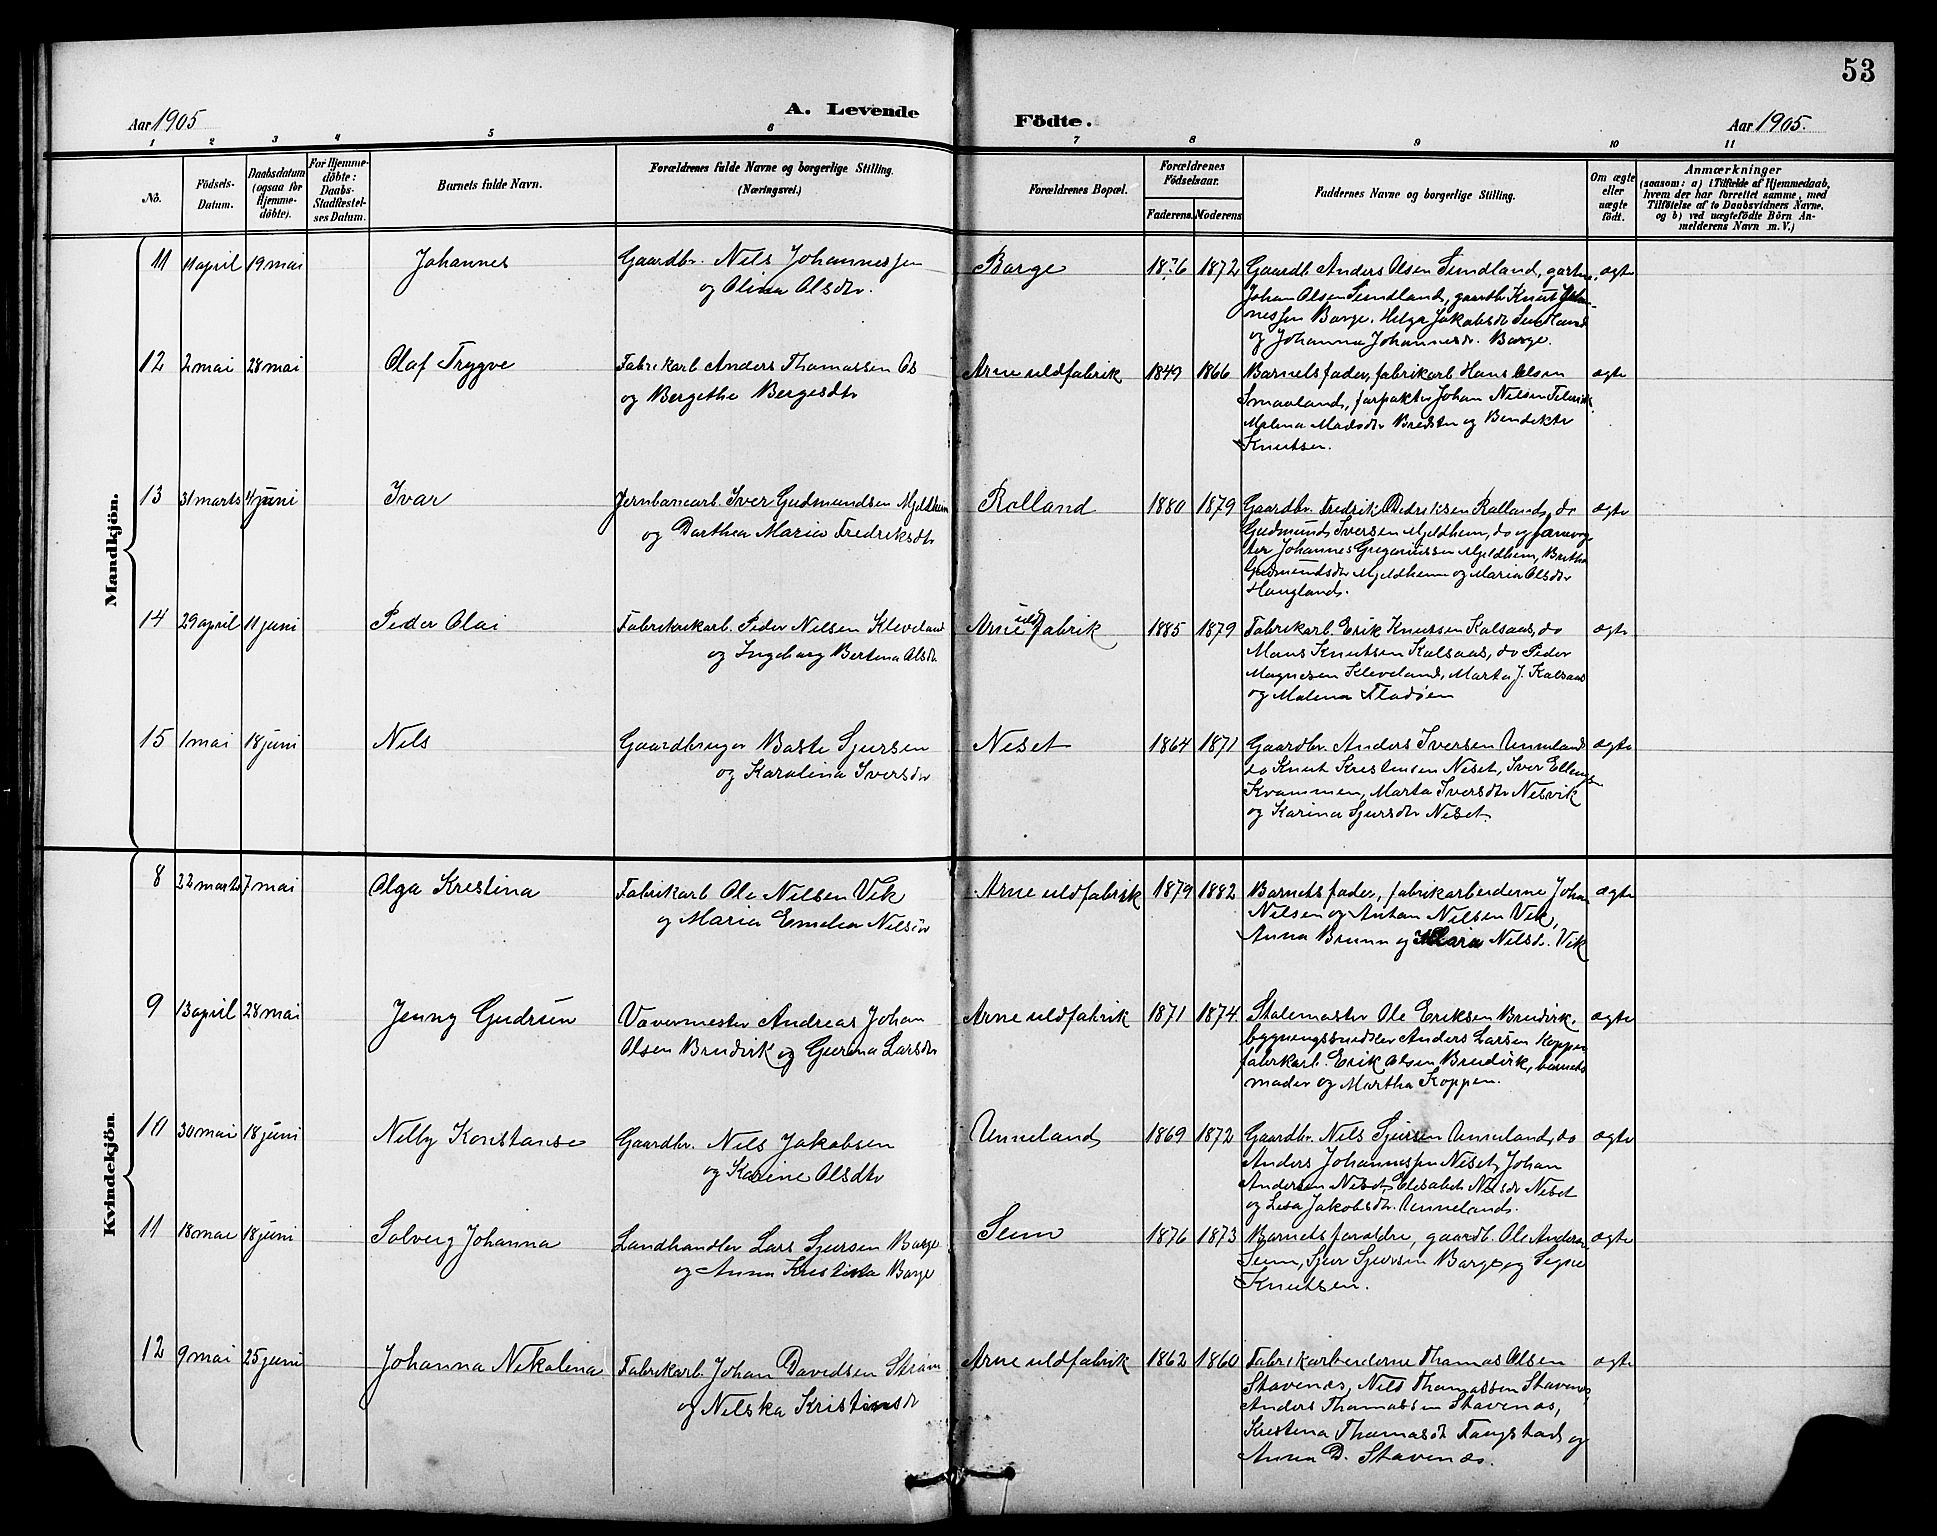 53
Aar 1905
A. Levende
Födte.
Aar 1905.
1 2 3 4 5 6 7 8 9 10 11
No.
Födsels-Datum.
Daabsdatum (ogsaa for Hjemme-döbte).
For Hjemme-döbte: Daabs-Stadfæstel-ses Datum.
Barnets fulde Navn.
Forældrenes fulde Navne og borgerlige Stilling. (Næringsvei.)
Forældrenes Bopæl.
Forældrenes Födselsaar.
Faderens. Moderens
Faddernes Navne og borgerlige Stilling.
Om ægte eller uægte födt.
Anmærkninger
(saasom: a) i Tilfælde af Hjemmedaab, hvem der har forrettet samme, med Tilföielse af to Daabsvidners Navne, og b) ved uægtefödte Börn Anmelderens Navn m. V.)
Mandkjön.
11 11 april 19 mai Johannes Gaardbr. Nils Johannessen Borge 18?6 1872 Gaardb Anders Olsen Seimland, ægte
og Olina Olsdtr. Johan Olsen Seimland, gaardbr Knut Johan-
nessen Borge. Helga Jakobsdr Seimland
og Johanna Johannesdr. Borge.
12 2 mai 28 mai Olaf Trygve Fabrikarb Anders Thomassen Os Arne uldfabrik 1849 1866 Barnets fader, fabrikarb Hans Olsen ægte
og Bergethe Bergesdtr Smaaland, forpakter Johan Nilsen
Malena Madsdtr Bredsten og Bendikte
Knutsen.
13 31 marts 4 juni Ivar Jernbanearb. Iver Gudmundsen Mjeldheim Rolland 1880 1879 Gaardbr. Fredrik Dideriksen Rolland, do ægte
og Dorthea Maria Fredriksdtr Gudmund Iversen Mjeldhem, do og banevog-
ter Johannes Gregoriussen Mjeldhem, Britha
Gudmundsdtr Mjeldheim og Maria Olsdtr
Haugland.
14 29 april 11 juni Peder Olai Fabrikarb. Peder Nilsen Kleveland Arne uldfabrik 1885 1879 Fabrikarb. Erik Knutsen Kalsaas, do ægte
og Ingeborg Bertina Olsdr. Mons Knutsen Kalsaas, do Peder
Magnesen Kleveland, Marta J. Kalsaas
og Malena Fladöen
15 1 mai 18 juni Nils Gaardbruger Baste Sjursen Neset 1864 1871 Gaardbr. Anders Iversen Unneland ægte
og Karolina Iversdtr do Knut Kristensen Neset, Iver Ellingsen
Kvammen, Marta Iversdtr Nesvik
og Karina Sjursdtr Neset.
Kvindekjön.
8 22 marts 7 mai Olga Kristina Fabrikarb Ole Nilsen Vik Arne uldfabrik 1879 1882 Barnets fader, fabrikarbeiderne Johan ægte
og Maria Emelia Nilsdr Nilsen og Anton Nilsen Vik,
Anna Brunn og Maria Nilsd. Vik
9 13 april 28 mai Jenny Gudrun Vævermester Andreas Johan Arne uldfabrik 1871 1874 Stolemaster Ole Eriksen Brudvik, ægte
Olsen Brudvik og Gurina Larsdtr bygningssnedker Anders Larsen Koppen
fabrikarb. Erik Olsen Brudvik, barnets
moder og Martha Koppen.
10 30 mai 18 juni Nelly Konstanse Gaardbr. Nils Jakobsen Unneland 1869 1872 Gaardbr. Nils Sjursen Unneland, do ægte
og Karine Olsdtr Anders Johannessen Neset, Johan
Andersen Neset, Elisabet Nilsdr Neset
og Lisa Jakobsdtr. Unneland.
11 18 mai 18 juni Solveig Johanna Landhandler Lars Sjursen Borge Seim 1876 1873 Barnets forældre, gaardb. Ole Anderson ægte
og Anna Kristina Borge Seim, Sjur Sjursen Borge, og Signe
Knutsen.
12 9 mai 25 juni Johanna Nikolina Fabrikarb. Johan Davidsen Ström Arne uldfabrik 1862 1860 Fabrikarbeiderne Thomas Olsen ægte
og Nilska Kristinsdr Stavenæs, Nils Thomassen Stavenes,
Anders Thomassen Stavenæs,
Kristina Thomasdt Taugstad og
Anna D. Stavenæs.